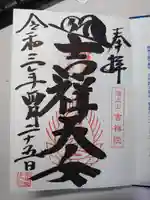 奉拝
吉祥天
吉祥院
令和三年四月二十五日